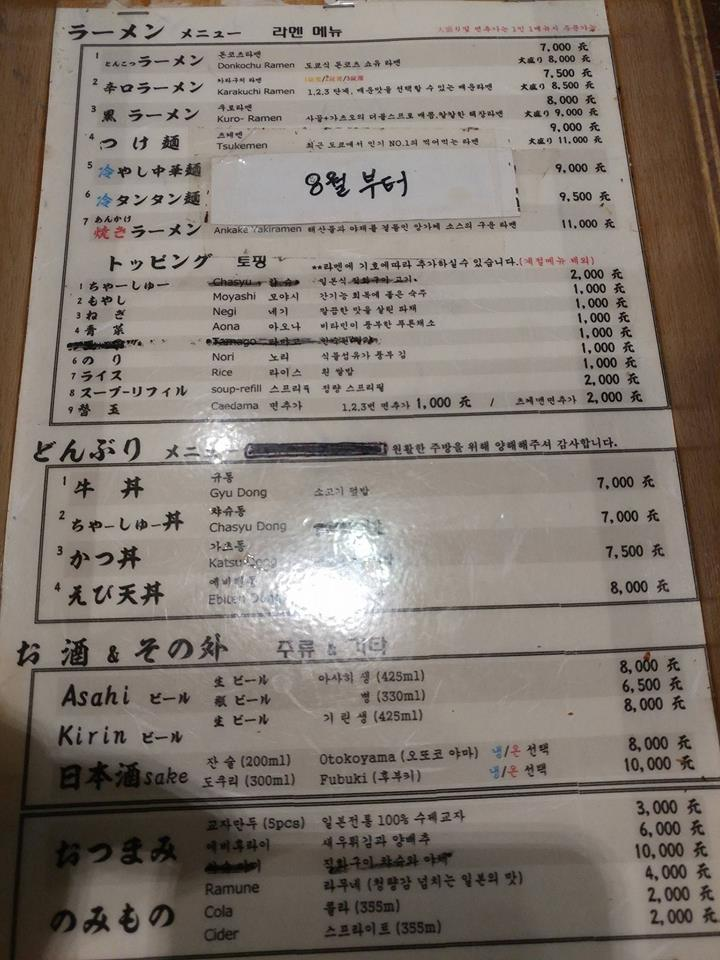 ラーメン メニュー 라멘 메뉴
1 とんこつラーメン 돈코츠라멘 Donkochu Ramen 도쿄식 돈코츠 쇼유 라멘 7,000 元 大盛り 8,000 元
2 辛口ラーメン 카라구치 라멘 Karakuchi Ramen 1,2,3 단계, 매운맛을 선택할 수 있는 매운라멘 7,500 元 大盛り 8,500 元
3 黒 ラーメン 쿠로라멘 Kuro- Ramen 8,000 元 大盛り 9,000 元
4 つけ麺 츠케멘 Tsukemen 최근 도쿄에서 인기 NO.1의 찍어먹는 라멘 9,000 元 大盛り 11,000 元
5 冷やし中華麺 9,000 元
8월 부터
6 冷タンタン麺 9,500 元
7 あんかけ 焼きラーメン Ankake Yakiramen 해산물과 야채를 곁들인 앙카케 소스의 구운 라멘 11,000 元
トッピング 토핑 **라멘에 기호에따라 추가하실수 있습니다.(계절메뉴 제외)
1 ちゃーしゅー Chasyu 2,000 元
2 もやし Moyashi 모야시 간기능 회복에 좋은 숙주 1,000 元
3 ねぎ Negi 네기 깔끔한 맛을 살린 파채 1,000 元
4 青菜 Aona 아오나 비타민이 풍부한 푸른채소 1,000 元
Tamago 1,000 元
6 のり Nori 노리 식물섬유가 풍부 김 1,000 元
7 ライス Rice 라이스 흰 쌀밥 1,000 元
8 スープーリフィル soup-refill 스프리필 정량 스프리필 2,000 元
9 替玉 Caedama 면추가 1,2,3번 면추가 1,000 元 / 츠케멘면추가 2,000 元
どんぶり メニュー 원활한 주방을 위해 양해해주셔 감사합니다.
1 牛丼 규동 Gyu Dong 소고기 덮밥 7,000 元
2 ちゃーしゅー丼 챠슈동 Chasyu Dong 7,000 元
3 かつ丼 가츠동 Katsu Dong 7,500 元
4 えび天丼 Ebiten Dong 8,000 元
お酒 & その外 주류 & 기타
Asahi ビール 生 ビール 아사히 생 (425ml) 8,000 元
瓶 ビール 병 (330ml) 6,500 元
Kirin ビール 生 ビール 기린 생 (425ml) 8,000 元
日本酒sake 잔 술 (200ml) Otokoyama (오또코 야마) 냉/온 선택 8,000 元
도쿠리 (300ml) Fubuki (후부키) 냉/온 선택 10,000 元
おつまみ 교자만두 (5pcs) 일본전통 100% 수제교자 3,000 元
에비후라이 새우튀김과 양배추 6,000 元
직화구이 챠슈와 야채 10,000 元
のみもの Ramune 라무네 (청량감 넘치는 일본의 맛) 4,000 元
Cola 콜라 (355m) 2,000 元
Cider 스프라이트 (355m) 2,000 元